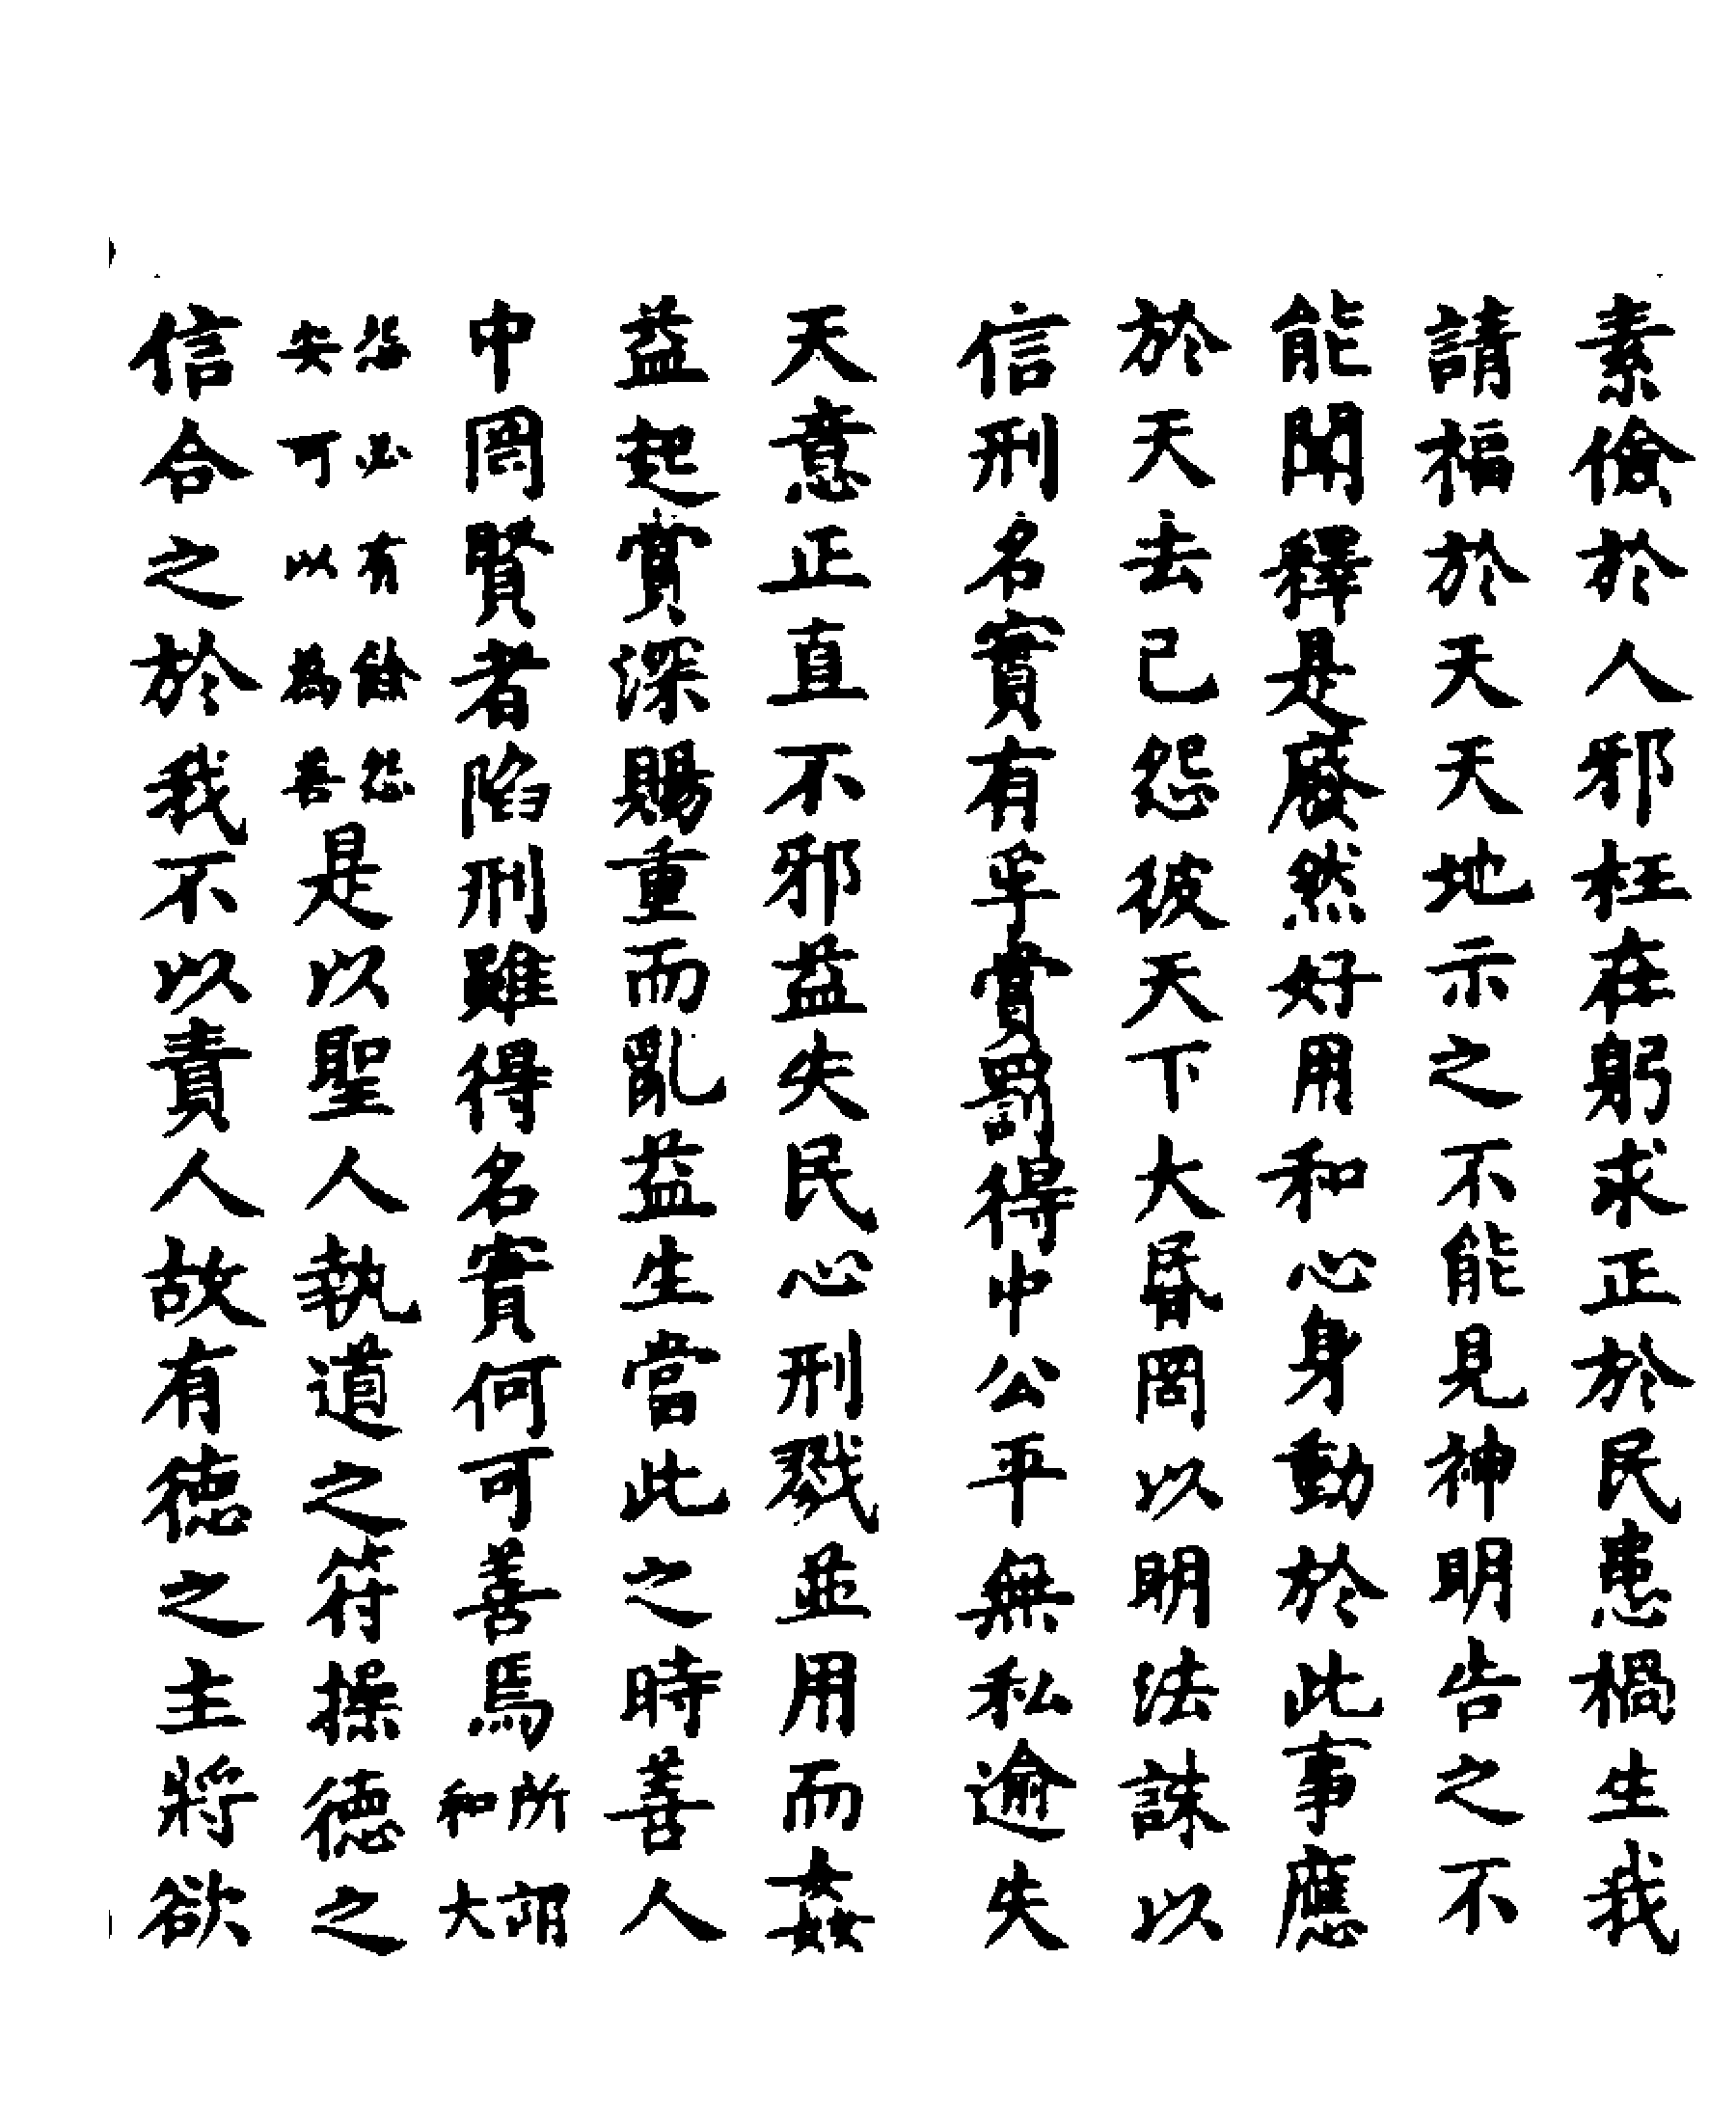 素儉於人邪枉在躬求正於民患禍生我
請福於天天地示之不能見神明告之不
能聞釋是廢然好用和心身動於此事應
於天去已怨彼天下大昬罔以明法誅以
信刑名實有孚賞罰得中公平無私逾失
天意正直不邪益失民心刑戮並用而姦
益起賞深賜重而亂益生當此之時善人
中罔賢者陷刑雖得名實何可善焉所謂和大
怨必有餘怨安可以為善是以聖人執道之符操德之
信合之於我不以責人故有德之主將欲